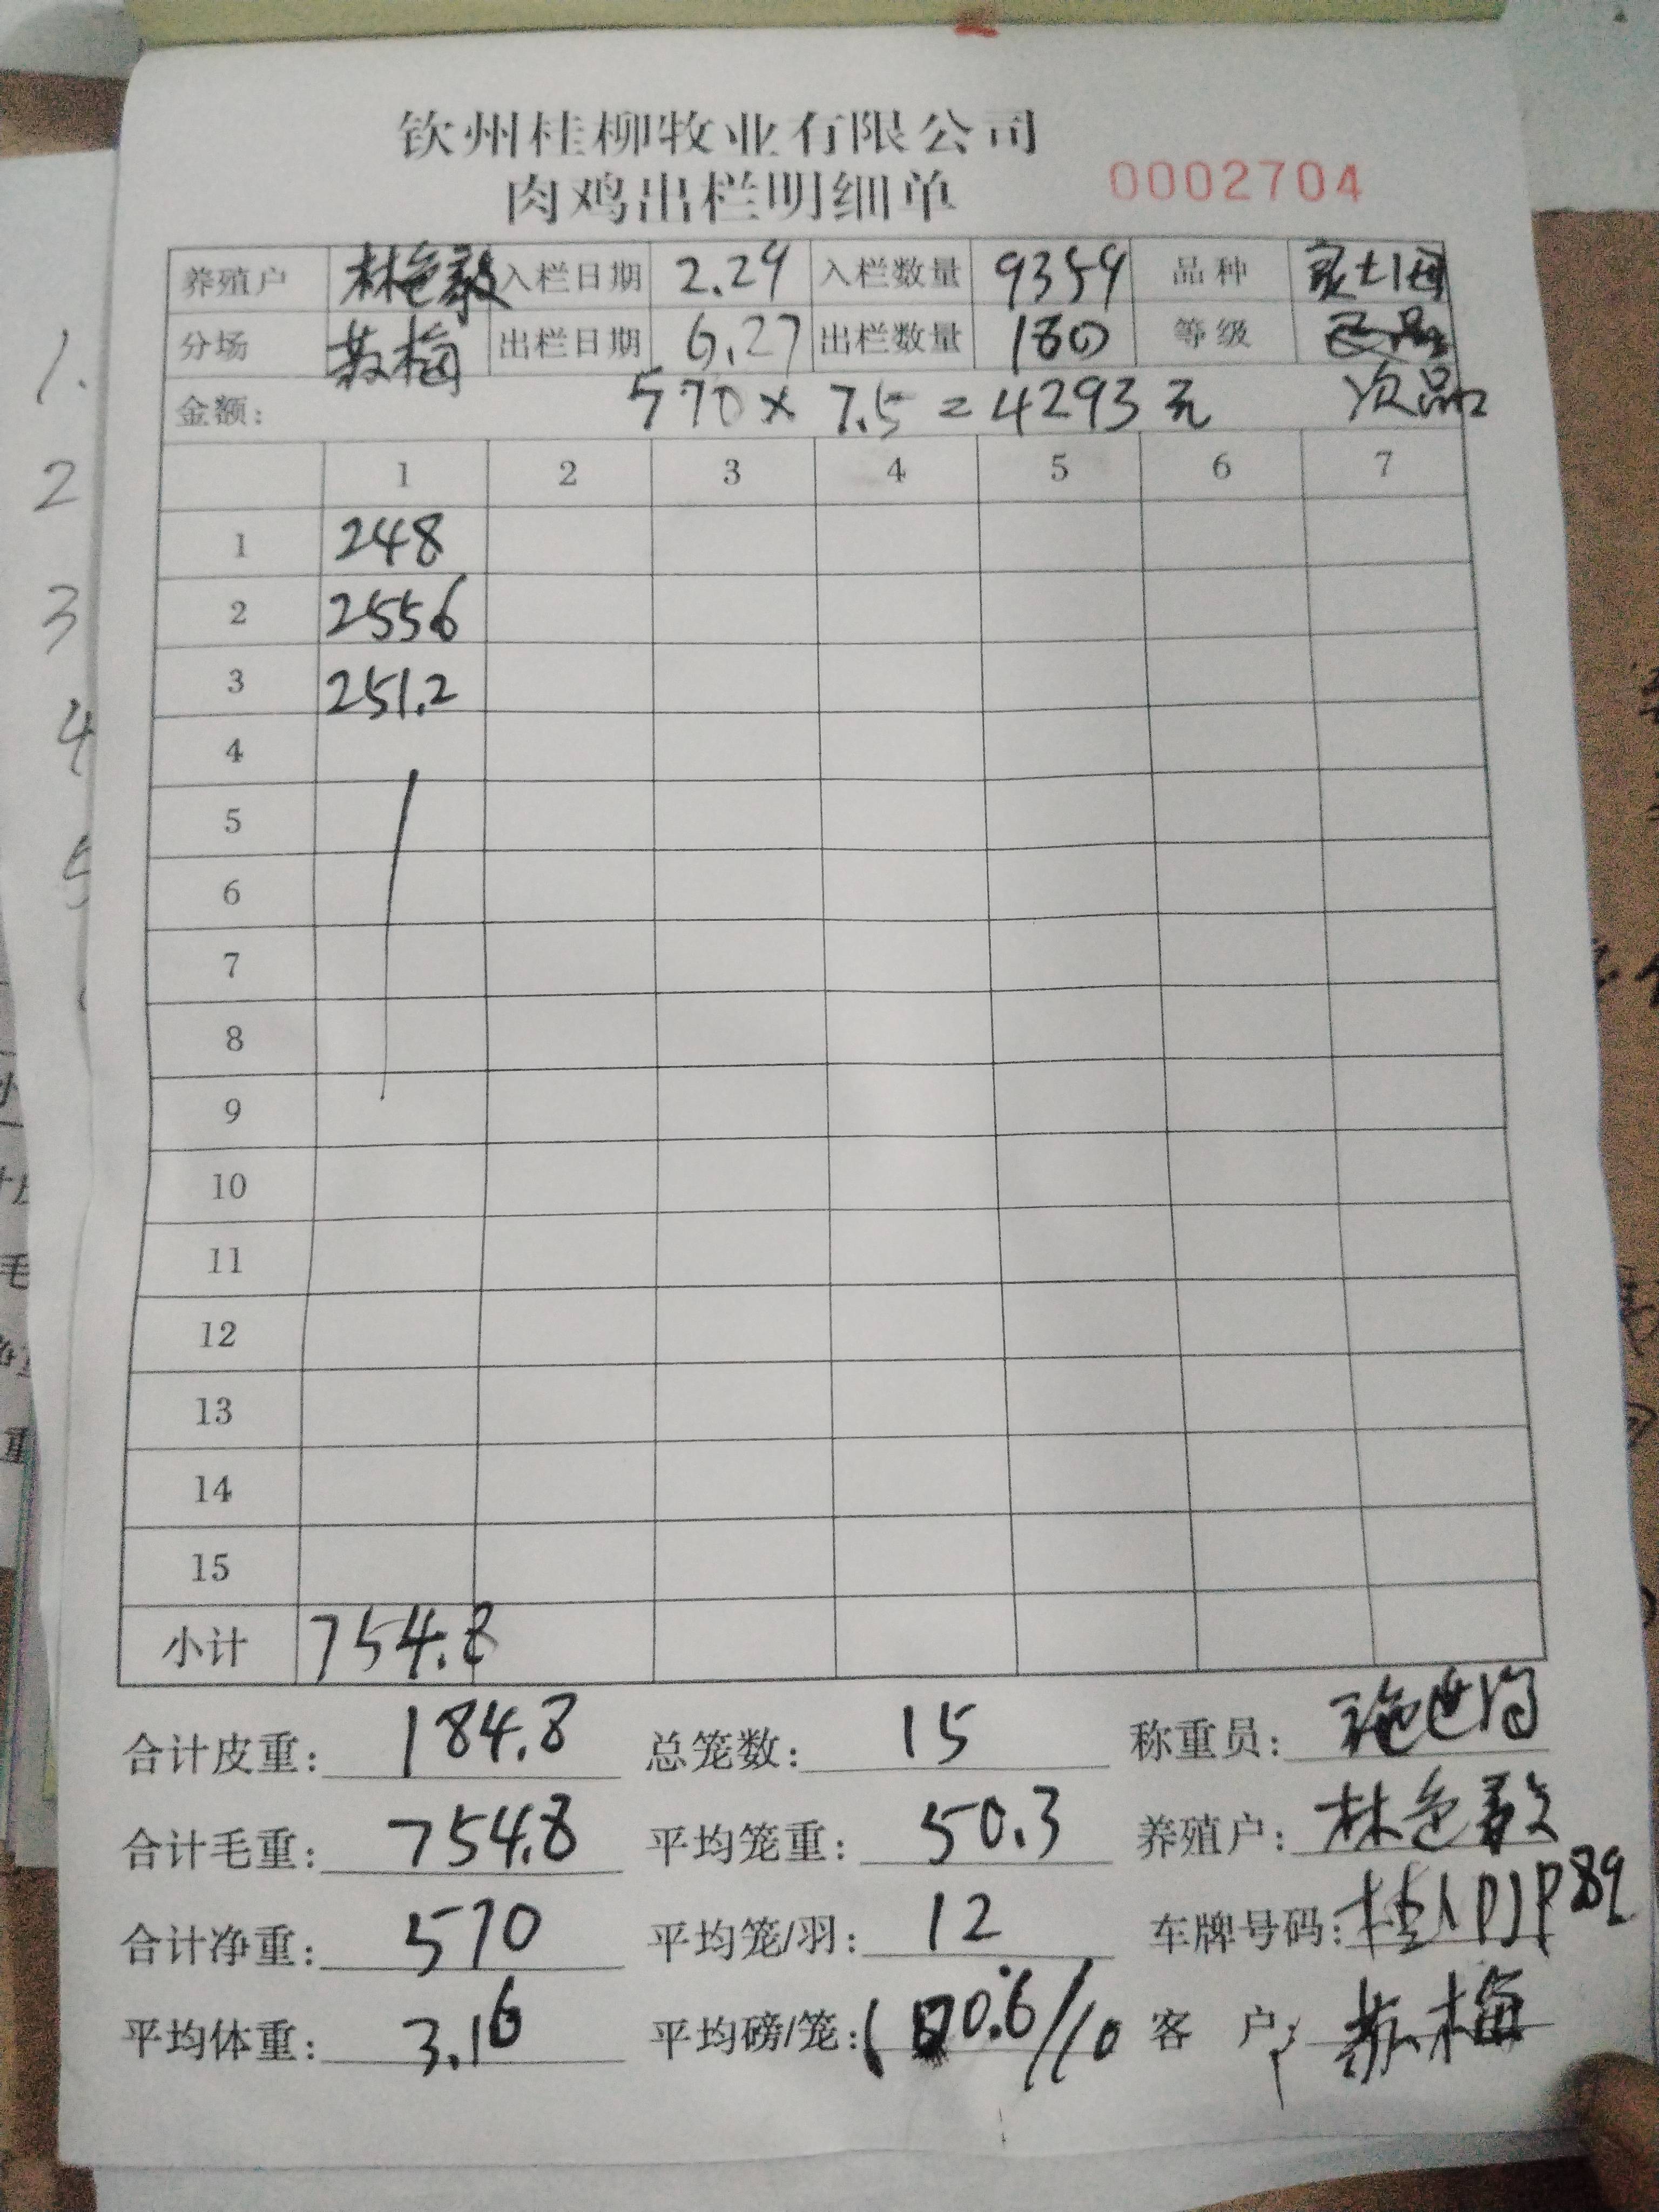 钦州桂柳牧业有限公司
肉鸡出栏明细单 0002704
养殖户 林色毅 入栏日期 2.29 入栏数量 9359 品种
分场 苏梅 出栏日期 6.27 出栏数量 180 等级
金额: 570 × 7.5 = 4293 元 次品
1 2 3 4 5 6 7
1 248
2 2556
3 251.2
4
5
6
7
8
9
10
11
12
13
14
15
小计 754.8
合计皮重: 184.8 总笼数: 15 称重员:
合计毛重: 754.8 平均笼重: 50.3 养殖户: 林色毅
合计净重: 570 平均笼/羽: 12 车牌号码:
平均体重: 3.16 平均磅/笼: 客 户: 苏梅
1.
2
3
4
5